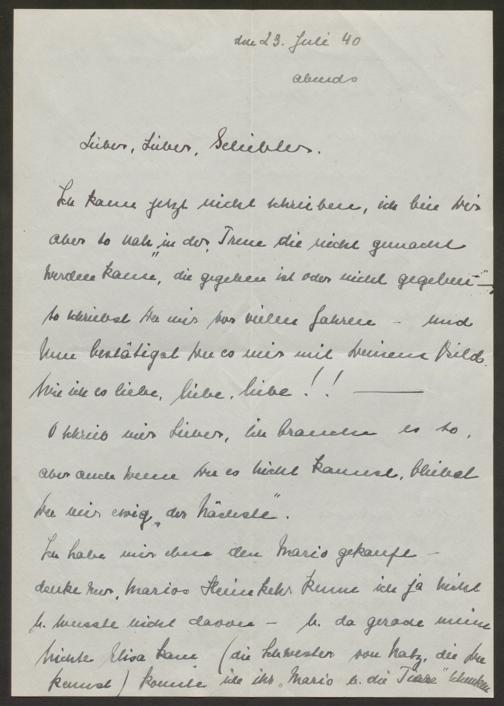 den 23. Juli 40
abends
Lieber, Lieber, Geliebter.
Ich kann jetzt nicht schreiben, ich bin Dir
aber so nah „in der Treue die nicht gemacht
werden kann, die gegeben ist oder nicht gegeben" –,
so schriebst Du mir vor vielen Jahren – und
nun bestätigst Du es mir mit Deinem Bild.
Wie ich es liebe, liebe, liebe!! —
O schreib mir Lieber, ich brauche es so,
aber auch wenn Du es nicht kannst, bleibst
Du mir ewig „der Nächste".
Ich habe mir eben den Mario gekauft –
denke nur, Marios Heimkehr kenne ich ja nicht
u. wusste nicht davon – u. da gerade meine
Nichte Elisa kam (die Schwester von, die Du
kennst) konnte ich ihr „Mario u. die Tiere" schenken